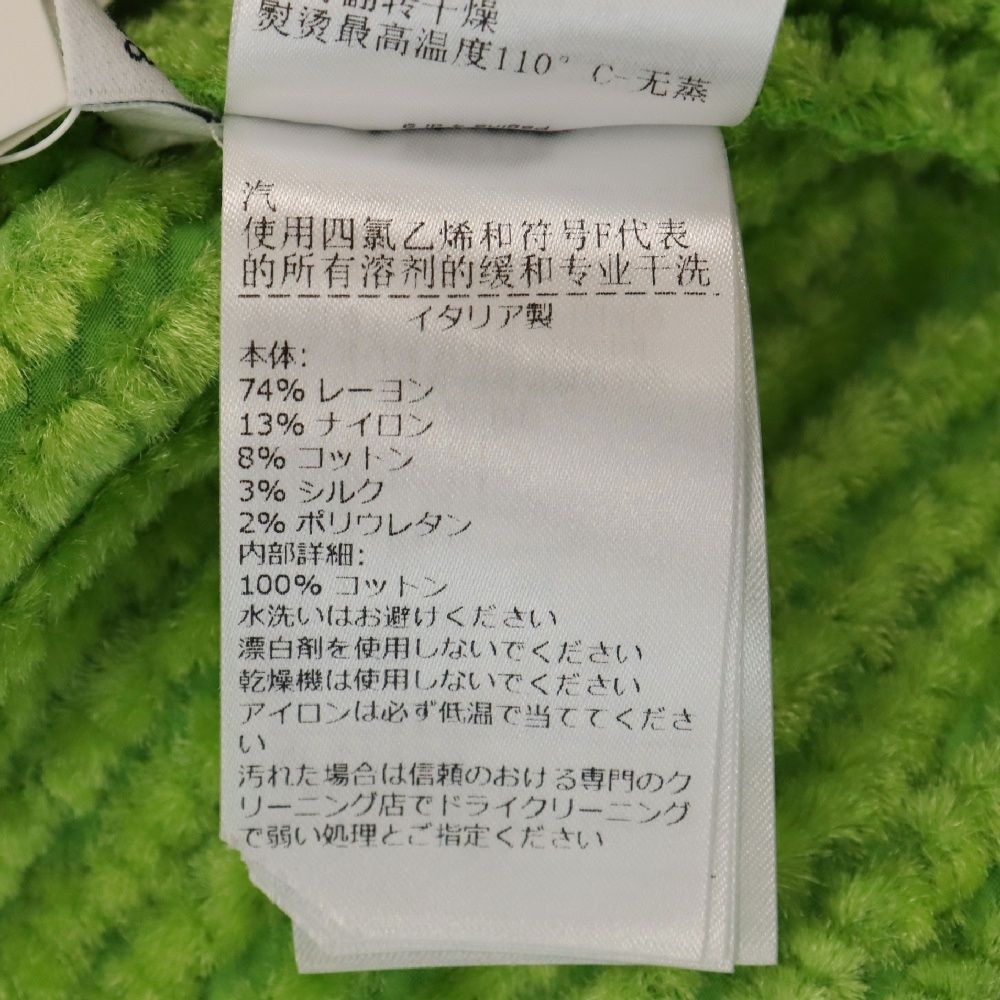 翻转干燥
熨烫最高温度110° C-无蒸
汽
使用四氯乙烯和符号F代表
的所有溶剂的缓和专业干洗
イタリア製
本体:
74% レーヨン
13% ナイロン
8% コットン
3% シルク
2% ポリウレタン
内部詳細:
100% コットン
水洗いはお避けください
漂白剤を使用しないでください
乾燥機は使用しないでください
アイロンは必ず低温で当ててくださ
い
汚れた場合は信頼のおける専門のク
リーニング店でドライクリーニング
で弱い処理とご指定ください